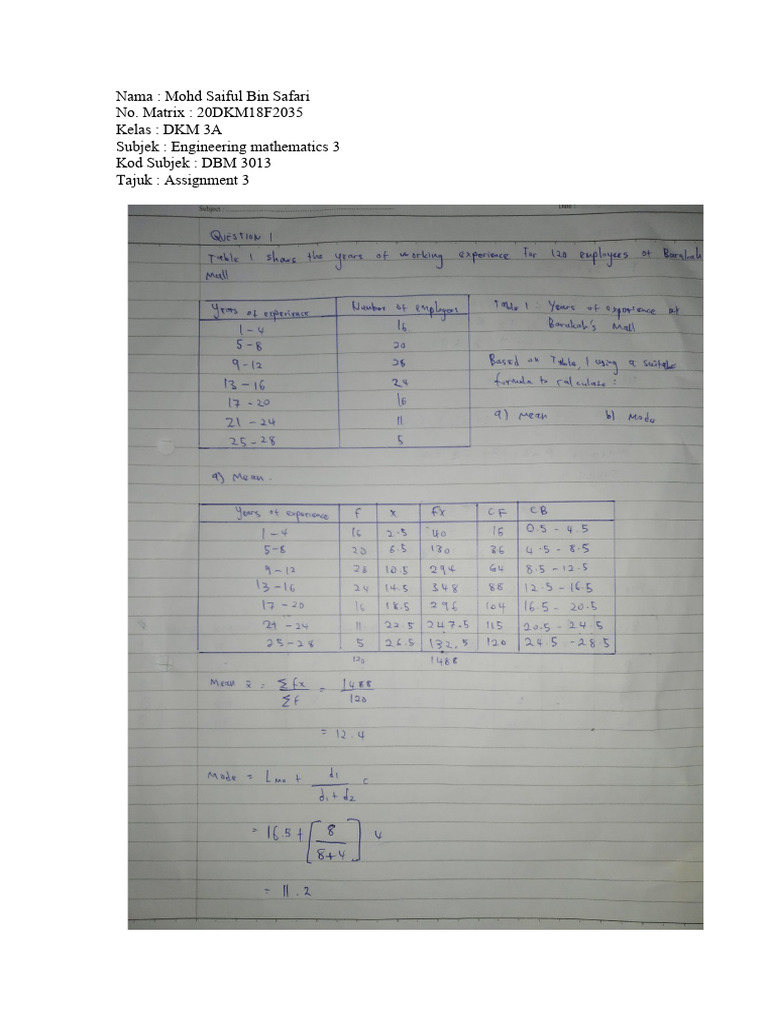 Nama : Mohd Saiful Bin Safari
No. Matrix : 20DKM18F2035
Kelas : DKM 3A
Subjek : Engineering mathematics 3
Kod Subjek : DBM 3013
Tajuk : Assignment 3
Subject :
QUESTION 1
Table 1 shows the years of working experience for 120 employees at Barakah
Mall
Years of experience Number of employees
1 - 4 16
5 - 8 20
9 - 12 28
13 - 16 24
17 - 20 16
21 - 24 11
25 - 28 5
Table 1 : Years of experience at
Barakah's Mall
Based on Table 1 using a suitable
formula to calculate :
a) Mean b) Mode
a) Mean .
Years of experience f x fx CF CB
1 - 4 16 2.5 40 16 0.5 - 4.5
5 - 8 20 6.5 130 36 4.5 - 8.5
9 - 12 28 10.5 294 64 8.5 - 12.5
13 - 16 24 14.5 348 88 12.5 - 16.5
17 - 20 16 18.5 296 104 16.5 - 20.5
21 - 24 11 22.5 247.5 115 20.5 - 24.5
25 - 28 5 26.5 132.5 120 24.5 - 28.5
1488
Mean x̄ = Σfx / Σf = 1488 / 120
= 12.4
Mode = Lmo + d1 / d1 + d2 c
= 16.5 + [ 8 / 8+4 ] 4
= 11.2